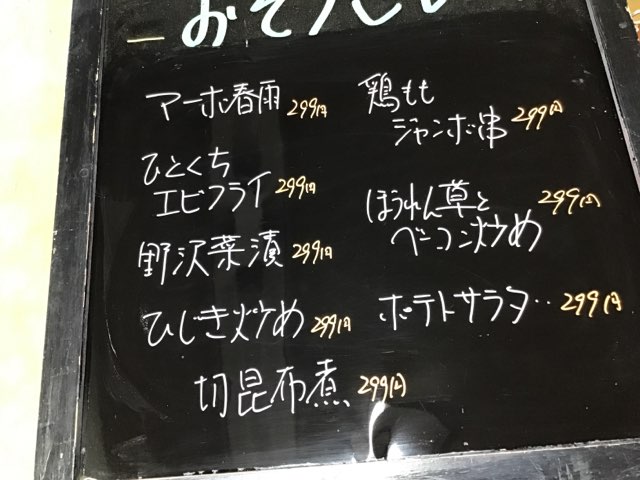 おそうざい
マーボ春雨 299円
ひとくち
エビフライ 299円
野沢菜漬 299円
ひじき炒め 299円
切昆布煮 299円
鶏もも
ジャンボ串 299円
ほうれん草と
ベーコン炒め 299円
ポテトサラダ 299円